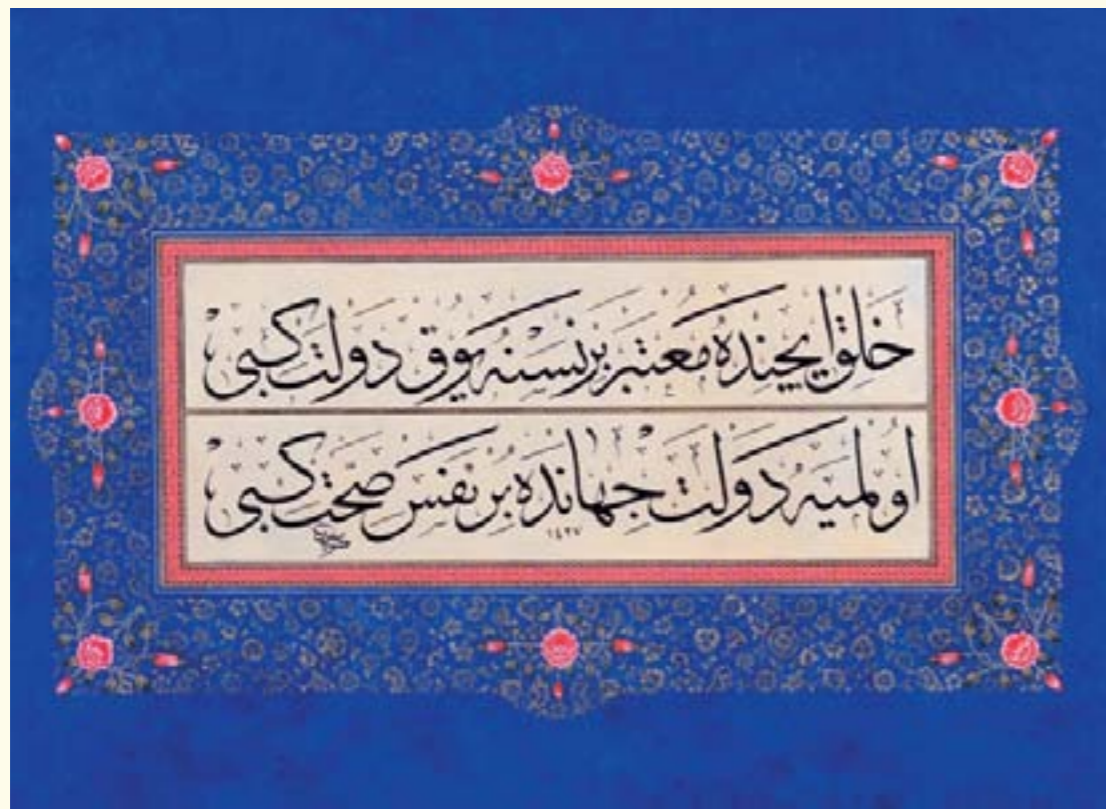 خلق ایچنده معتبر بر نسنه یوق دولت کبی
اولمیه دولت جهانده بر نفس صحت کبی
١٤٢٧